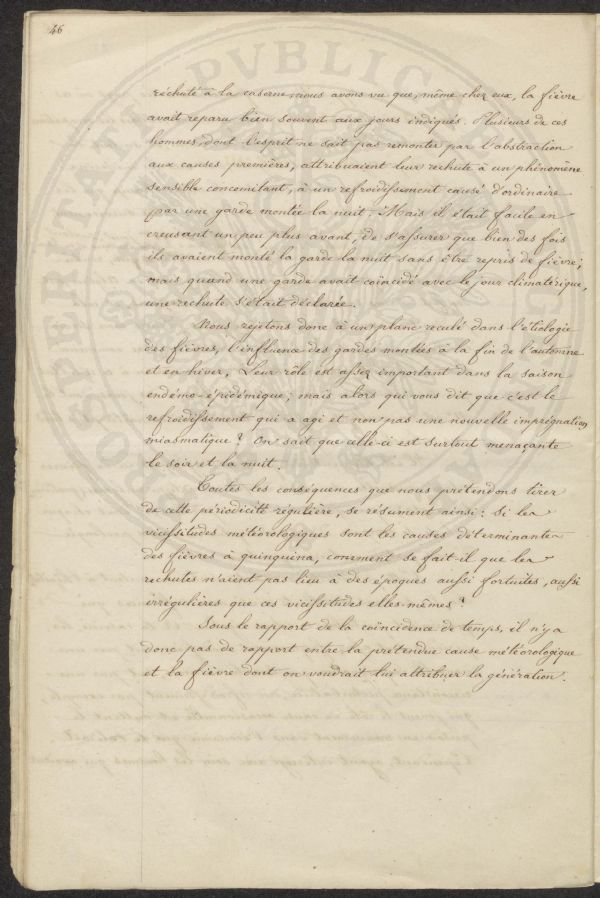 46
rechuté à la caserne, nous avons vu que, même chez eux, la fièvre
avait reparu bien souvent aux jours indiqués. Plusieurs de ces
hommes, dont l'esprit ne sait pas remonter par l'abstraction
aux causes premières, attribuaient leur rechute à un phénomène
sensible concomitant, à un refroidissement causé d'ordinaire
par une garde montée la nuit. Mais il était facile en
creusant un peu plus avant, de s'assurer que bien des fois
ils avaient monté la garde la nuit sans être repris de fièvre;
mais quand une garde avait coïncidé avec le jour climatérique,
une rechute s'était déclarée.
Nous rejetons donc à un plan reculé dans l'étiologie
des fièvres, l'influence des gardes montées à la fin de l'automne
et en hiver. Leur rôle est assez important dans la saison
endémo-épidémique; mais alors qui vous dit que c'est le
refroidissement qui a agi et non pas une nouvelle imprégnation
miasmatique? On sait que celle-ci est surtout menaçante
le soir et la nuit.
Toutes les conséquences que nous prétendons tirer
de cette périodicité régulière, se résument ainsi: Si les
vicissitudes météorologiques sont les causes déterminantes
des fièvres à quinquina, comment se fait-il que les
rechutes n'aient pas lieu à des époques aussi fortuites, aussi
irrégulières que ces vicissitudes elles-mêmes?
Sous le rapport de la coïncidence de temps, il n'y a
donc pas de rapport entre la prétendue cause météorologique
et la fièvre dont on voudrait lui attribuer la génération.